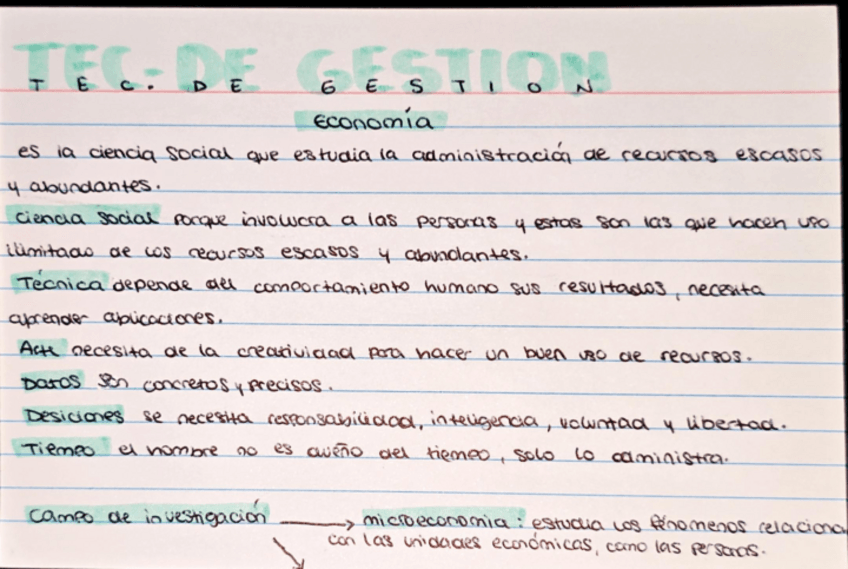 TEC. DE GESTION
TEC. DE GESTION
Economía
es la ciencia social que estudia la administración de recursos escasos
y abundantes.
ciencia social porque involucra a las personas y estas son las que hacen uso
ilimitado de los recursos escasos y abundantes.
Técnica depende del comportamiento humano sus resultados, necesita
aprender aplicaciones.
Arte necesita de la creatividad para hacer un buen uso de recursos.
Datos son concretos y precisos.
Desiciones se necesita responsabilidad, inteligencia, voluntad y libertad.
Tiempo el hombre no es dueño del tiempo, solo lo administra.
Campo de investigación → microeconomia: estudia los fenomenos relaciona
con las unidades económicas, como las personas.